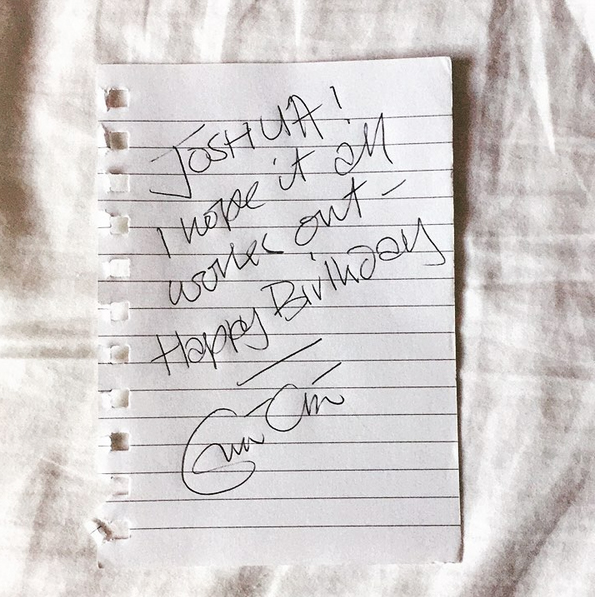 JOSHUA!
I hope it all
works out –
Happy Birthday